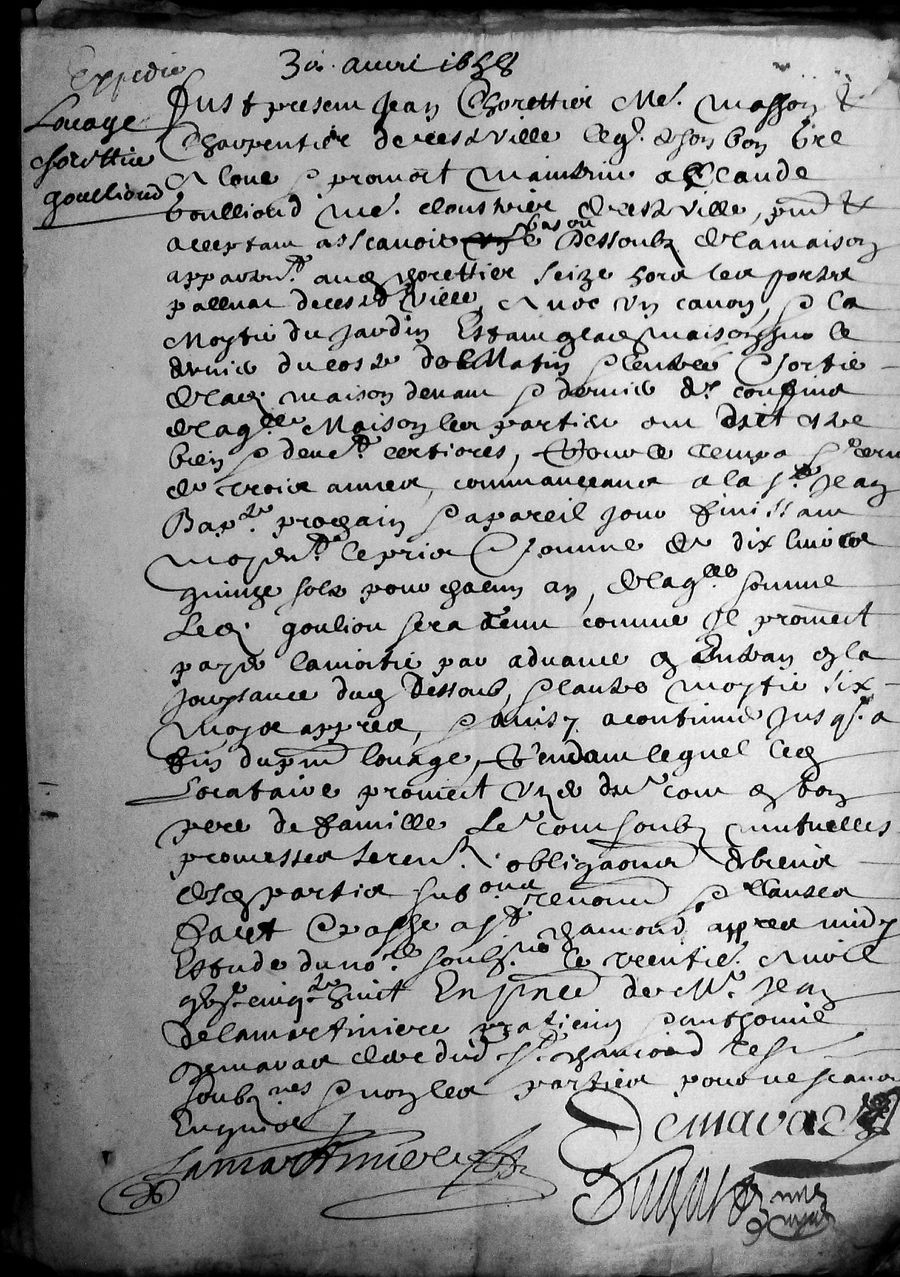 Expedié
30 auril 1658
Louage
Chorettier
goulliond
Fust present Jean Chorettier Me. masson &
Charpentier de ceste ville leq. de son bon gre
A loue & promect maintenir a Claude
Goulliond me. cloustrier de cestd ville, pnt &
acceptant assçauoir le bas ou dessoubz de la maison
appartent. aud chorettier seize hors les portes
de cested ville, Auec vn canon, & la
Moytie du jardin Estant lad maison sur le
derrie du costé du Matin & entrée & sortie
de lad. maison deuant & derrier des confins
de laqlle Maison les parties ont dict estre
bien & deuemt certiores, & ce pour le temps & terme
de trois annes, commanceant a la st Jean
Bapte prochain & a pareil jour finissant
moyent. le prix & somme de dix liures
quinze sols pour chacun an, de laqlle somme
Led. goulion sera tenu comme Il promect
payer la moitie par aduance en Entran en la
Jouyssance dud dessoub, & l'autre moytie six
Moys appres, & ainsy a continuer Jusq. a
fin du pnt louage, & Pendant lequel led
Locataire promect vzer dud. comme bon
pere de famille le tout soubz mutuelles
promesses serent. obligaons de biens
desd parties subons renonons & clauses
Faict & Passe a St chamond appres midy
Estude du no.re soubz.ne le trentie. Auril
gbic cinqte huict En pnce de Mr. Jean
Delamartiniere praticien & anthoine
Demavas clerc dud St chamond tesf
soubz.nes & non les parties pour ne scauoir
Enquis
Lamartiniere
Demavas